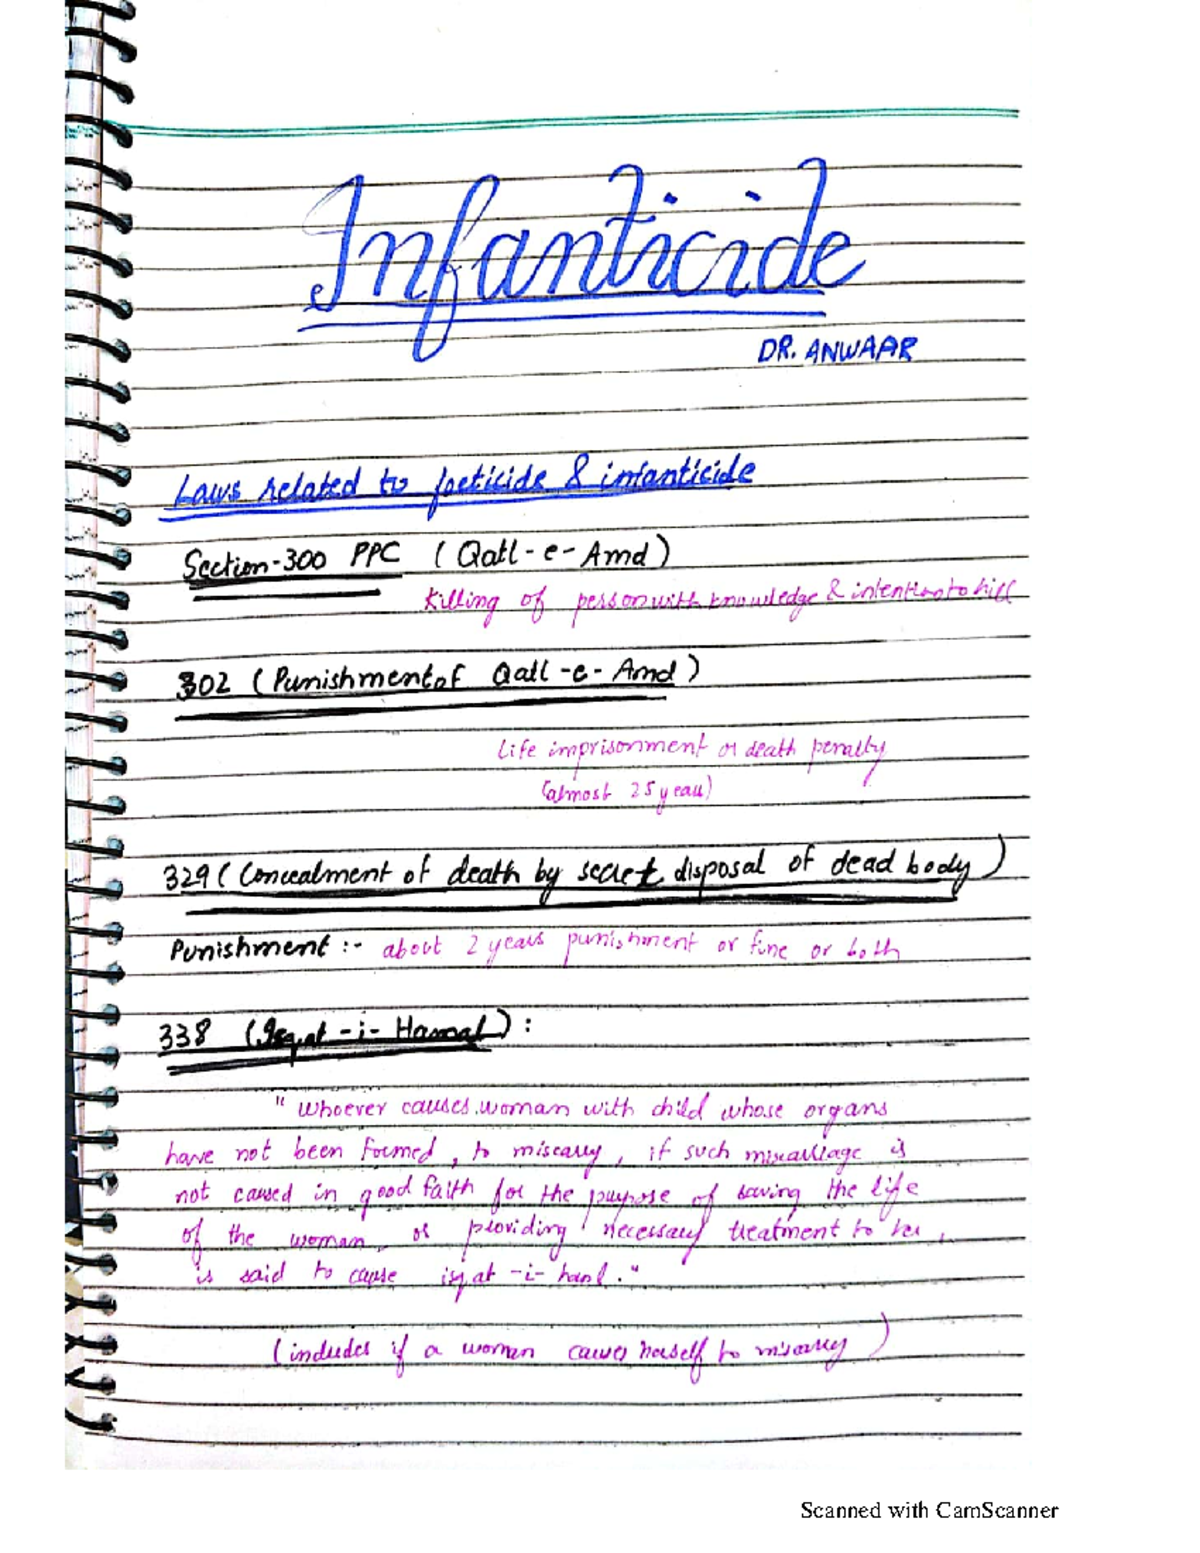 Infanticide
DR. ANWAAR
Laws related to foeticide & infanticide
Section-300 PPC (Qatl-e-Amd)
Killing of person with knowledge & intention to kill
302 (Punishment of Qatl-e-Amd)
Life imprisonment or death penalty
(almost 25 years)
329 (Concealment of death by secret disposal of dead body)
Punishment :- about 2 years punishment or fine or both
338 (Isqat-i-Hamal) :
" Whoever causes woman with child whose organs
have not been formed, to miscarry, if such miscarriage is
not caused in good faith for the purpose of saving the life
of the woman, or providing necessary treatment to her,
is said to cause isqat-i-haml."
(includes if a woman causes herself to miscarry)
Scanned with CamScanner